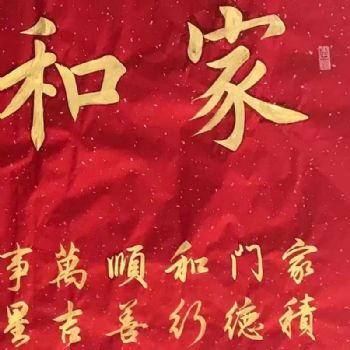 家和
家门和順萬事
積德行善吉星